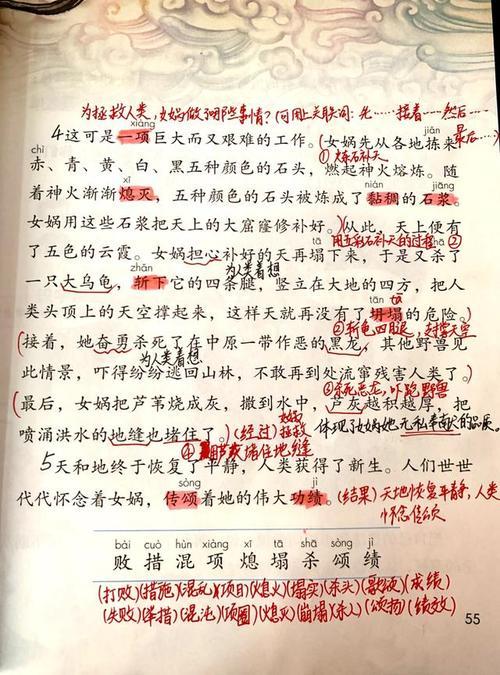 为拯救人类，女娲做了哪些事情？（可用上关联词：先……接着……然后……最后……）
xiàng
4这可是一项巨大而又艰难的工作。（女娲先从各地拣来
chì jiǎn
①炼石补天
赤、青、黄、白、黑五种颜色的石头，燃起神火熔炼。随
xī nián jiāng
着神火渐渐熄灭，五种颜色的石头被炼成了黏稠的石浆。
女娲用这些石浆把天上的大窟窿修补好。）（从此，天上便有
用五彩石补天的过程 ②
tā
了五色的云霞。女娲担心补好的天再塌下来，于是又杀了
为人类着想
zhǎn
一只大乌龟，斩下它的四条腿，竖立在大地的四方，把人
tān tā
类头顶上的天空撑起来，这样天就再没有了坍塌的危险。）
②斩龟四腿，支撑天空
（接着，她奋勇杀死了在中原一带作恶的黑龙，其他野兽见
为人类着想
此情景，吓得纷纷逃回山林，不敢再到处流窜残害人类了。）
③杀死恶龙，吓跑野兽
（最后，女娲把芦苇烧成灰，撒到水中，芦灰越积越厚，把
喷涌洪水的地缝也堵住了。）（经过）女娲拯救 体现了女娲她无私奉献的品质。
④用芦灰堵住地缝
5天和地终于恢复了平静，人类获得了新生。人们世世
sòng jì
代代怀念着女娲，传颂着她的伟大功绩。（结果）天地恢复平静，人类
怀念传颂
bài cuò hùn xiàng xī tā shā sòng jì
败 措 混 项 熄 塌 杀 颂 绩
（打败）（措施）（混乱）（项目）（熄火）（塌实）（杀头）（歌颂）（成绩）
（失败）（举措）（混沌）（项圈）（熄灭）（崩塌）（杀人）（颂扬）（绩效）
55